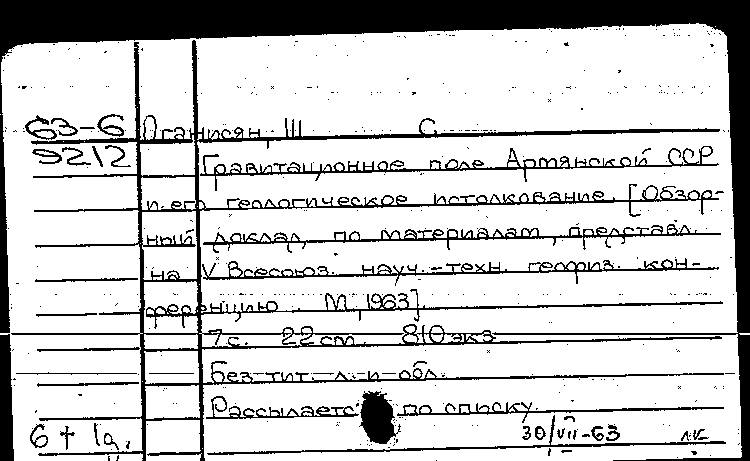 63-6 Оганисян, Ш С.
9212 Гравитационное поле Армянской ССР
и его геологическое истолкование. [Обзор-
ный доклад, по материалам, представл.
на V Всесоюз. науч.-техн. геофиз. кон-
ференцию. М., 1963].
7 с. 22 см. 810 экз
Без тит. л. и обл.
Рассылаетс по списку.
6 + 1д. 30/VII-63